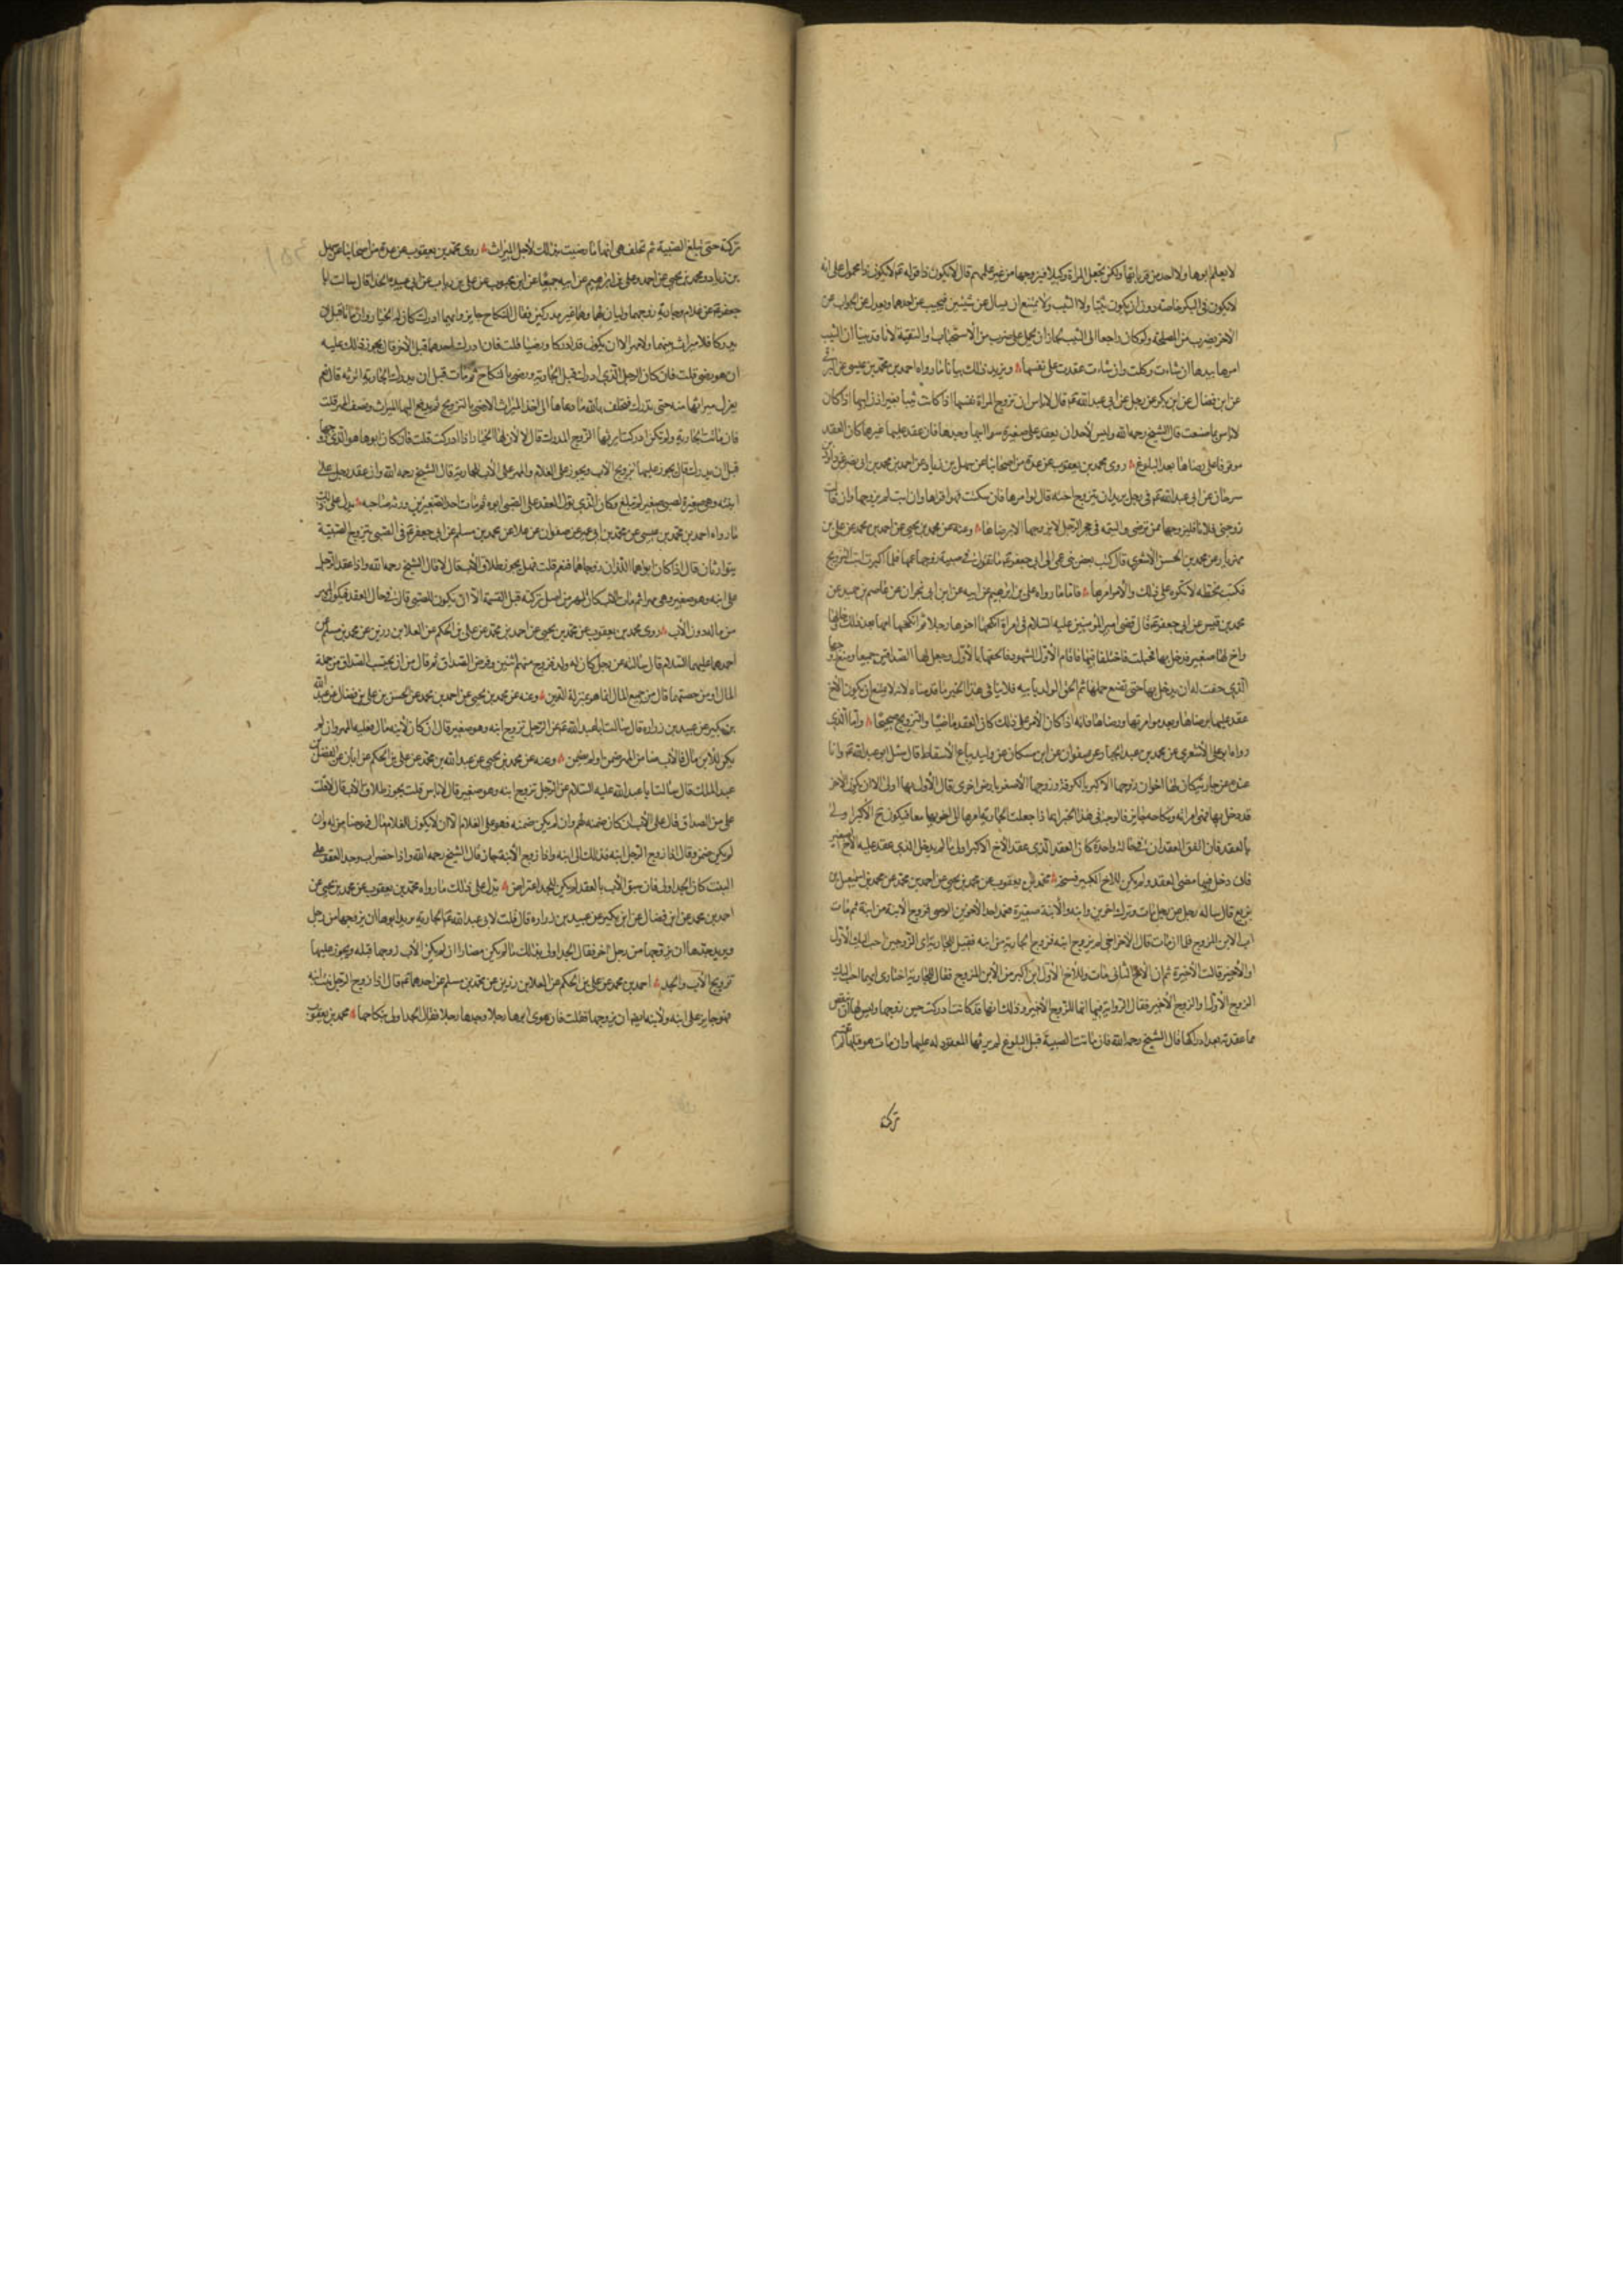 لا يعلم ابوها ولا احد من قرباتها ولكن تجعل المراة وكيلا فيزوجها من غير علمهم قال لا يكون ذا قوله تع لا يكون ذا محمول على انه
لا يكون فى البكر خاصة دون ان يكون ثيبا ولا الثيب ولا يمتنع ان يسال عن شيئين فيجيب عن احدهما ويعدل عن الجواب عن
الاخر بضرب من المصلحة ولو كان راجعا الى الثيب لجاز ان يحمل على ضرب من الاستحباب او التقية لانا قد بينا ان الثيب
امرها بيدها ان شاءت وكلت وان شاءت عقدت على نفسها ويزيد ذلك بيانا ما رواه احمد بن محمد بن عيسى عن البرقى
عن ابن فضال عن ابن بكير عن رجل عن ابى عبد الله ع قال لا باس ان تزوج المراة نفسها اذا كانت ثيبا بغير اذن ابيها اذا كان
لا باس بما صنعت قال الشيخ رحمه الله وليس لاحد ان يعقد على صغيرة سوا ابيها وجدها فان عقد عليها غيرهما كان العقد
موقوفا على رضاها بعد البلوغ روى محمد بن يعقوب عن عدة من اصحابنا عن سهل بن زياد عن احمد بن محمد بن ابى نصر عن داود بن
سرحان عن ابى عبد الله ع فى رجل يريد ان يزوج اخته قال يوامرها فان سكتت فهو اقرارها وان ابت لم يزوجها وان قالت
زوجنى فلانا فليزوجها ممن ترضى واليتيمة فى حجر الرجل لا يزوجها الا برضاها وعنه عن محمد بن يحيى عن احمد بن محمد عن على بن
مهزيار عن محمد بن الحسن الاشعرى قال كتب بعض بنى عمى الى ابى جعفر ع ما تقول فى صبية زوجها عمها فلما كبرت ابت التزويج
فكتب بخطه لا تكره على ذلك والامر امرها فاما ما رواه على بن ابراهيم عن ابيه عن ابن ابى نجران عن عاصم بن حميد عن
محمد بن قيس عن ابى جعفر ع قال قضى امير المومنين عليه السلام فى امراة انكحها اخوها رجلا ثم انكحتها امها بعد ذلك رجلا
واخ لها صغير فدخل بها فحبلت فاختلفا فيها فاقام الاول الشهود فالحقها بالاول وجعل لها الصداقين جميعا ومنع زوجها
الذى حقت له ان يدخل بها حتى تضع حملها ثم الحق الولد بابيه فلا ينافى هذا الخبر ما قدمناه لانه لا يمتنع ان يكون الاخ
عقد عليها برضاها وبعد موامرتها ورضاها فانه اذا كان الامر على ذلك كان العقد ماضيا والتزويج صحيحا واما الذى
رواه ابو على الاشعرى عن محمد بن عبد الجبار عن صفوان عن ابن مسكان عن وليد بياع الاسفاط قال سئل ابو عبد الله ع وانا
عنده عن جارية كان لها اخوان زوجها الاكبر بالكوفة وزوجها الاصغر بارض اخرى قال الاول بها اولى الا ان يكون الاخر
قد دخل بها فهى امراته ونكاحه جايز فالوجه فى هذا الخبر انما اذا جعلت الجارية امرها الى اخويها معا فيكون ح الاكبر اولى
بالعقد فان اتفق العقدان فى حالة واحدة كان العقد الذى عقد الاخ الاكبر اولى ما لم يدخل الذى عقد عليه الاخ الصغير
فان دخل فيها مضى العقد ولم يكن للاخ الكبير فسخه محمد بن يعقوب عن محمد بن يحيى عن احمد بن محمد عن محمد بن اسمعيل بن
بزيع قال ساله رجل عن رجل مات وترك اخوين وابنة والابنة صغيرة فعمد احد الاخوين الوصى فزوج الابنة من ابنه ثم مات
اب الابن المزوج فلما ان مات قال الاخر اخى لم يزوج ابنه فزوج الجارية من ابنه فقيل للجارية اى الزوجين احب اليك الاول
او الاخير قالت الاخير ثم ان الاخ الثانى مات وللاخ الاول ابن اكبر من الابن المزوج فقال للجارية اختارى ايهما احب اليك
الزوج الاول او الزوج الاخير فقال الرواية فيها انها للزوج الاخير وذلك انها قد كانت ادركت حين زوجها وليس لها ان تنقض
ما عقدته بعد ادراكها قال الشيخ رحمه الله فان ماتت الصبية قبل البلوغ لم يرثها المعقود له عليها وان مات هو قبلها عزل
تركة
تركة حتى تبلغ الصبية ثم تحلف هى انها ما رضيت بذلك لاجل الميراث روى محمد بن يعقوب عن عدة من اصحابنا عن سهل
بن زياد ومحمد بن يحيى عن احمد وعلى بن ابراهيم عن ابيه جميعا عن ابن محبوب عن على بن رياب عن ابى عبيدة الحذا قال سالت ابا
جعفر ع عن غلام وجارية زوجهما وليان لهما وهما غير مدركين فقال النكاح جايز وايهما ادرك كان له الخيار وان ماتا قبل ان
يدركا فلا ميراث بينهما ولا مهر الا ان يكون قد ادركا ورضيا قلت فان ادرك احدهما قبل الاخر قال يجوز ذلك عليه
ان هو رضى قلت فان كان الرجل الذى ادرك قبل الجارية ورضى بالنكاح ثم مات قبل ان يدرك الجارية اترثه قال نعم
يعزل ميراثها منه حتى تدرك فتحلف بالله ما دعاها الى اخذ الميراث الا رضى بالتزويج ثم يدفع اليها الميراث ونصف المهر قلت
فان ماتت الجارية ولم تكن ادركت ايرثها الزوج المدرك قال لا لان لها الخيار اذا ادركت قلت فان كان ابوها هو الذى زوجها
قبل ان يدرك قال يجوز عليها تزويج الاب ويجوز على الغلام والمهر على الاب للجارية قال الشيخ رحمه الله وان عقد رجل على
ابنته وهى صغيرة لصبى صغير لم يبلغ وكان الذى يتولى العقد على الصبى ابوه ثم مات احد الصغيرين ورثه صاحبه يدل على ذلك
ما رواه احمد بن محمد بن عيسى عن محمد بن ابى عمير عن صفوان عن علا عن محمد بن مسلم عن ابى جعفر ع فى الصبى تزوج الصبية
يتوارثان قال اذا كان ابواهما اللذان زوجاهما فنعم قلت فهل يجوز طلاق الاب قال لا قال الشيخ رحمه الله واذا عقد الرجل
على ابنه وهو صغير وهى مهرا ثم مات الاب كان المهر من اصل تركته قبل القسمة الا ان يكون للصبى قال فى حال العقد فيكون المهر
من ماله دون الاب روى محمد بن يعقوب عن محمد بن يحيى عن احمد بن محمد عن على بن الحكم عن العلا بن رزين عن محمد بن مسلم عن
احدهما عليهما السلام قال سالته عن رجل كان له ولد فزوج منهم اثنين وفرض الصداق ثم مات من اين يحتسب الصداق من جملة
المال او من حصتهما قال من جميع المال انما هو بمنزلة الدين وعنه عن محمد بن يحيى عن احمد بن محمد عن الحسن بن على بن فضال عن عبد الله
بن بكير عن عبيد بن زرارة قال سالت ابا عبد الله ع عن الرجل تزوج ابنه وهو صغير قال ان كان لابنه مال فعليه المهر وان لم
يكن للابن مال فالاب ضامن المهر ضمن او لم يضمن وعنه عن محمد بن يحيى عن عبد الله بن محمد عن على بن الحكم عن ابان عن الفضل بن
عبد الملك قال سالت ابا عبد الله عليه السلام عن الرجل تزوج ابنه وهو صغير قال لا باس قلت يجوز طلاق الاب قال لا قلت
على من الصداق قال على الاب ان كان ضمنه لهم وان لم يكن ضمنه فهو على الغلام الا ان لا يكون للغلام مال فهو ضامن له وان
لم يكن ضمن وقال اذا زوج الرجل ابنه فذلك الى ابنه واذا زوج الابنة جاز قال الشيخ رحمه الله واذا حضر اب وجد العقد على
البنت كان الجد اولى فان سبق الاب بالعقد لم يكن للجد اعتراض يدل على ذلك ما رواه محمد بن يعقوب عن محمد بن يحيى عن
احمد بن محمد عن ابن فضال عن ابن بكير عن عبيد بن زرارة قال قلت لابى عبد الله ع الجارية يريد ابوها ان يزوجها من رجل
ويريد جدها ان يزوجها من رجل اخر فقال الجد اولى بذلك ما لم يكن مضارا ان لم يكن الاب زوجها قبله ويجوز عليها
تزويج الاب والجد احمد بن محمد عن على بن الحكم عن العلا بن رزين عن محمد بن مسلم عن احدهما ع قال اذا زوج الرجل بنت ابنه
فهو جايز على ابنه ولابنه ايضا ان يزوجها فقلت فان هوى ابوها رجلا وجدها رجلا فقال الجد اولى بنكاحها محمد بن يعقوب